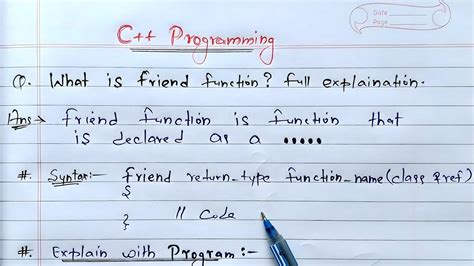 Date
Page
C++ Programming
Q. What is friend function? full explaination.
Ans → friend function is function that
is declared as a .....
#. Syntax:- friend return_type function_name(class &ref)
{
// Code
}
#. Explain with Program:-